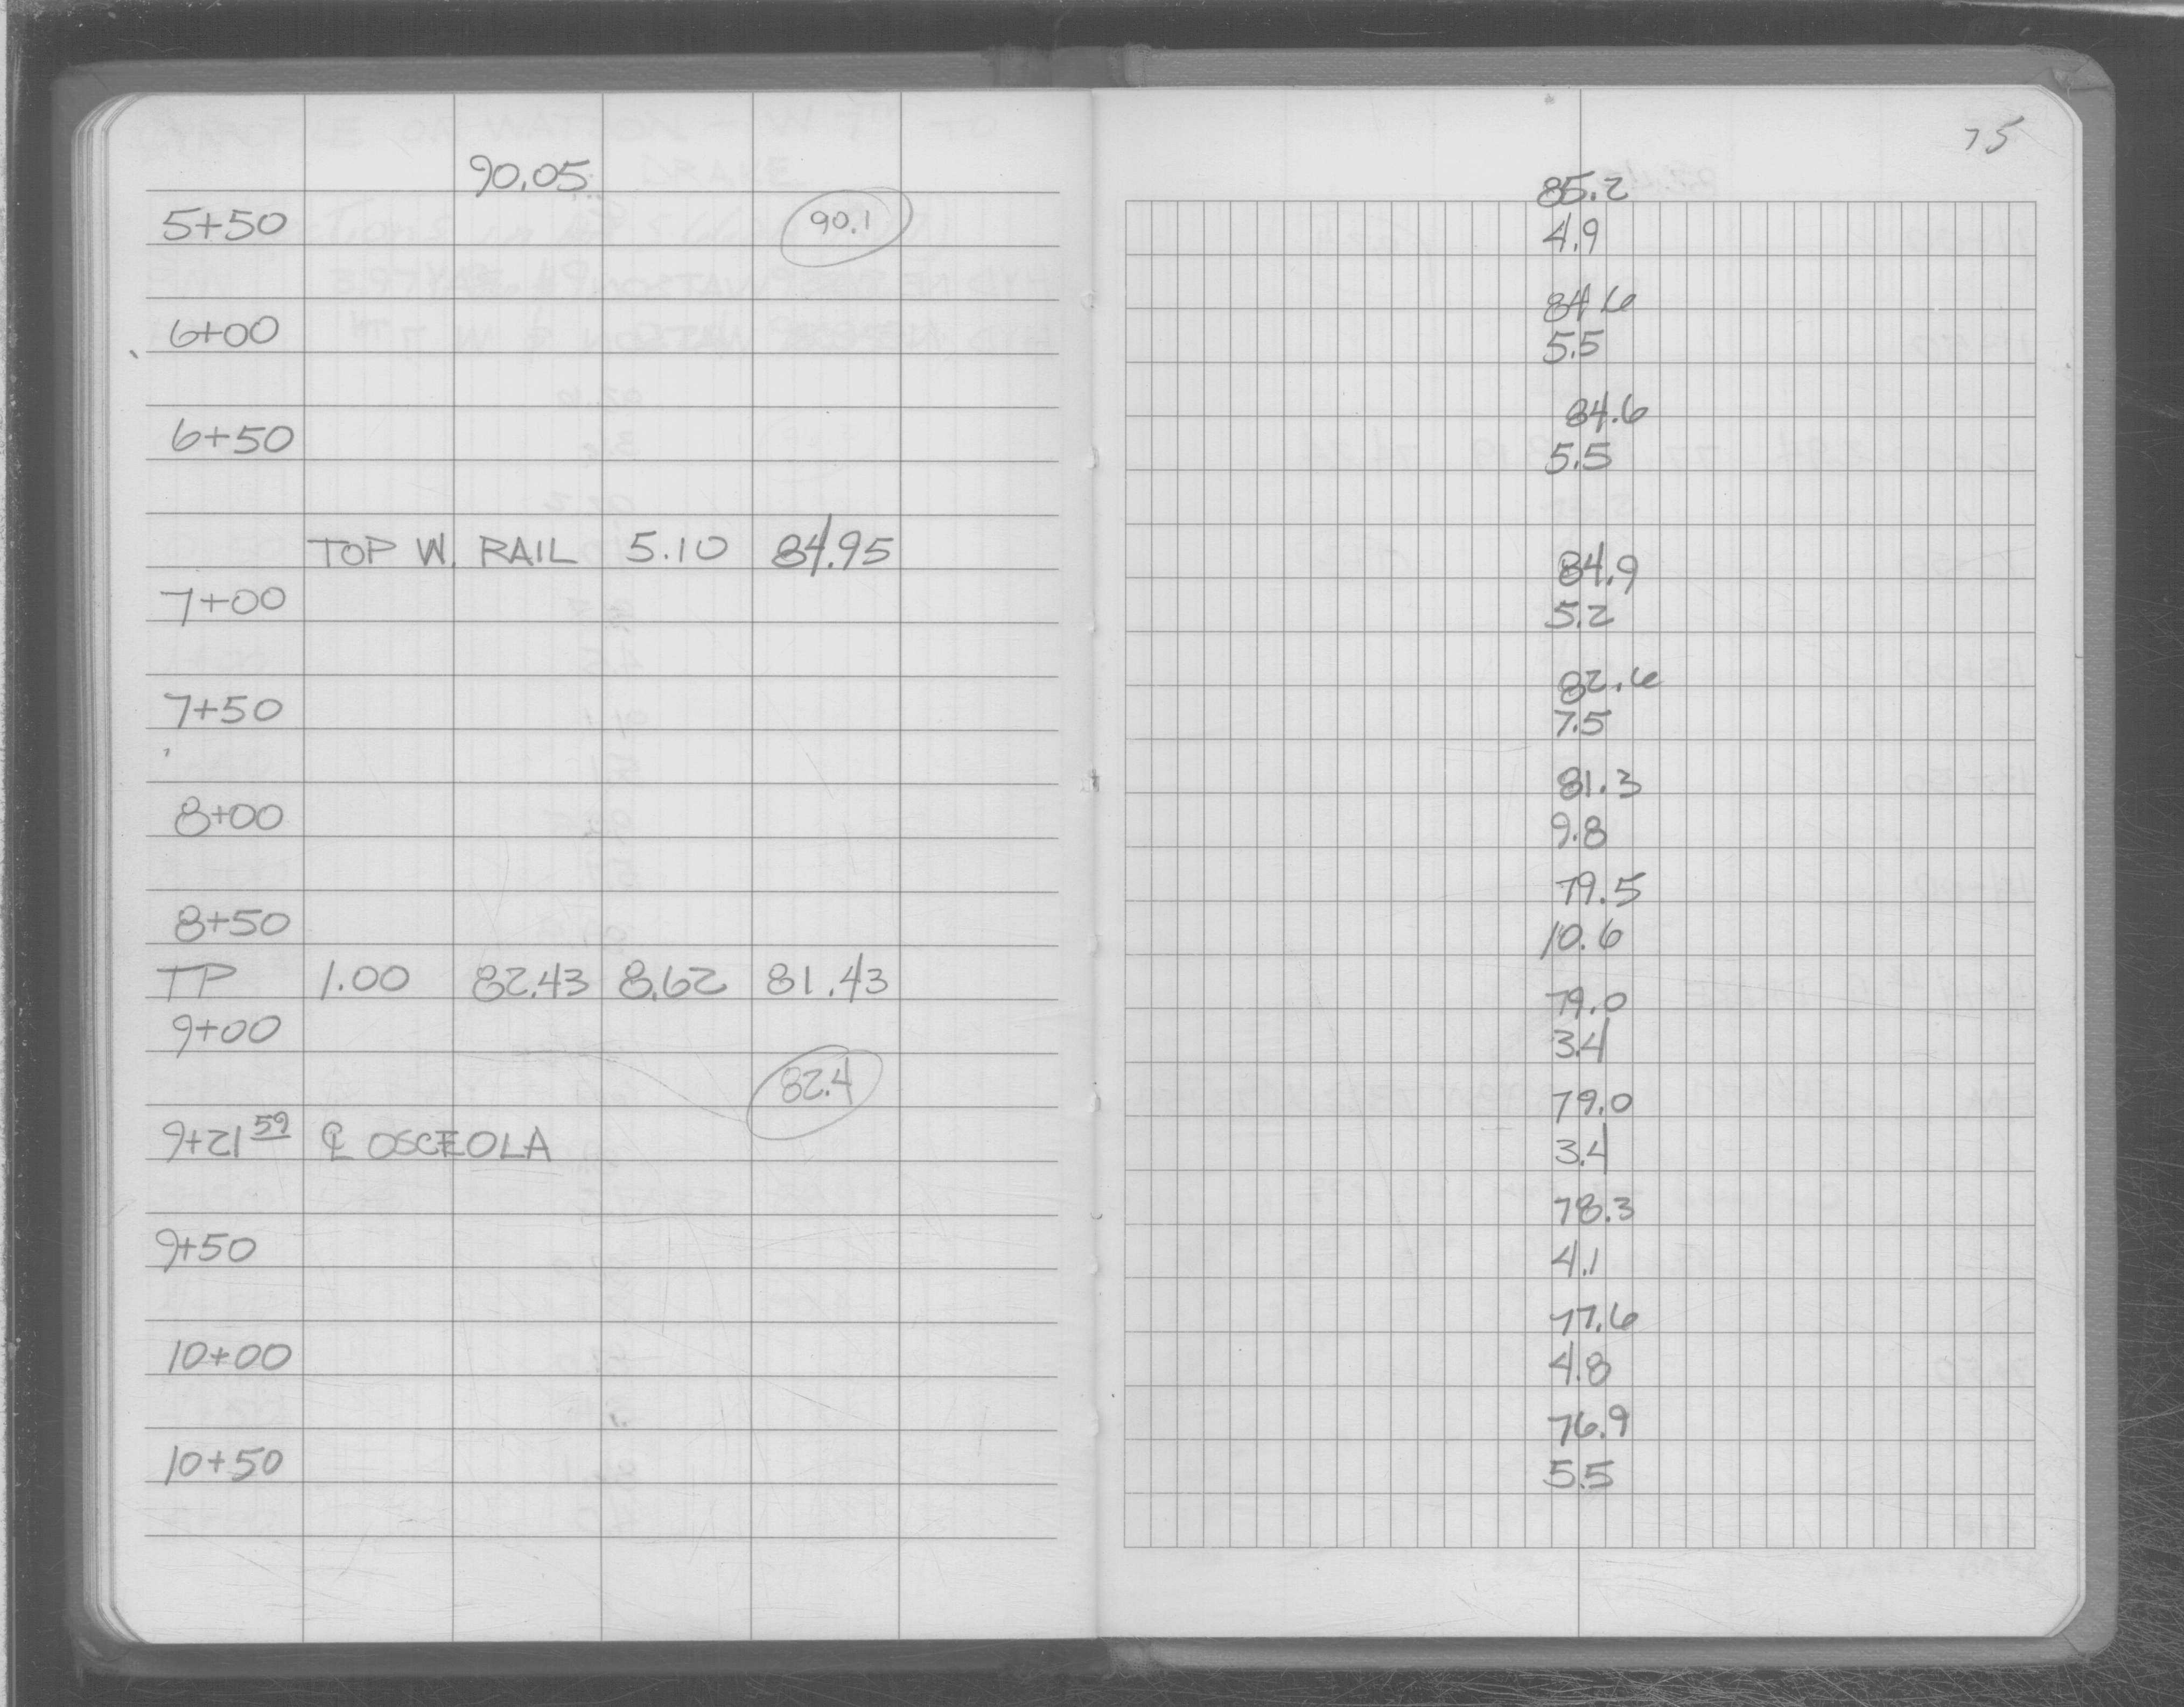 75
90.05
85.2
5+50 90.1
4.9
84.6
6+00
5.5
84.6
6+50
5.5
TOP W. RAIL 5.10 84.95
84.9
7+00
5.2
82.6
7+50
7.5
81.3
8+00
9.8
79.5
8+50
10.6
TP 1.00 82.43 8.62 81.43
79.0
9+00
3.4
82.4
79.0
9+21 59 ℄ OSCEOLA
3.4
78.3
9+50
4.1
77.6
10+00
4.8
76.9
10+50
5.5